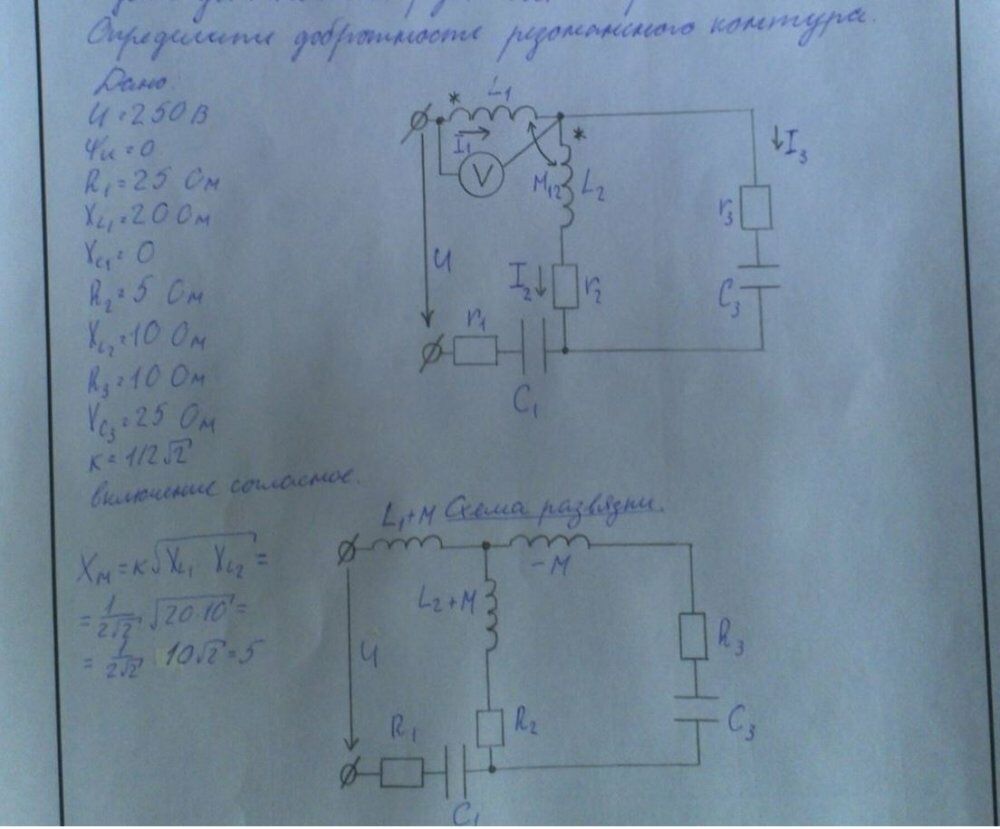 Определите добротность резонансного контура.
Дано:
U = 250 В
Ψu = 0
R1 = 25 Ом
XL1 = 20 Ом
XC1 = 0
R2 = 5 Ом
XL2 = 10 Ом
R3 = 10 Ом
XC3 = 25 Ом
к = 1/2√2
включение согласное.
* L1
I1
V
*
M12
L2
I3
r3
C3
U
I2
r2
r1
C1
Схема развязки.
L1+M
-M
L2+M
U
R3
C3
R2
R1
C1
XM = к√XL1 XL2 =
= 1/2√2 √20·10 =
= 1/2√2 10√2 = 5